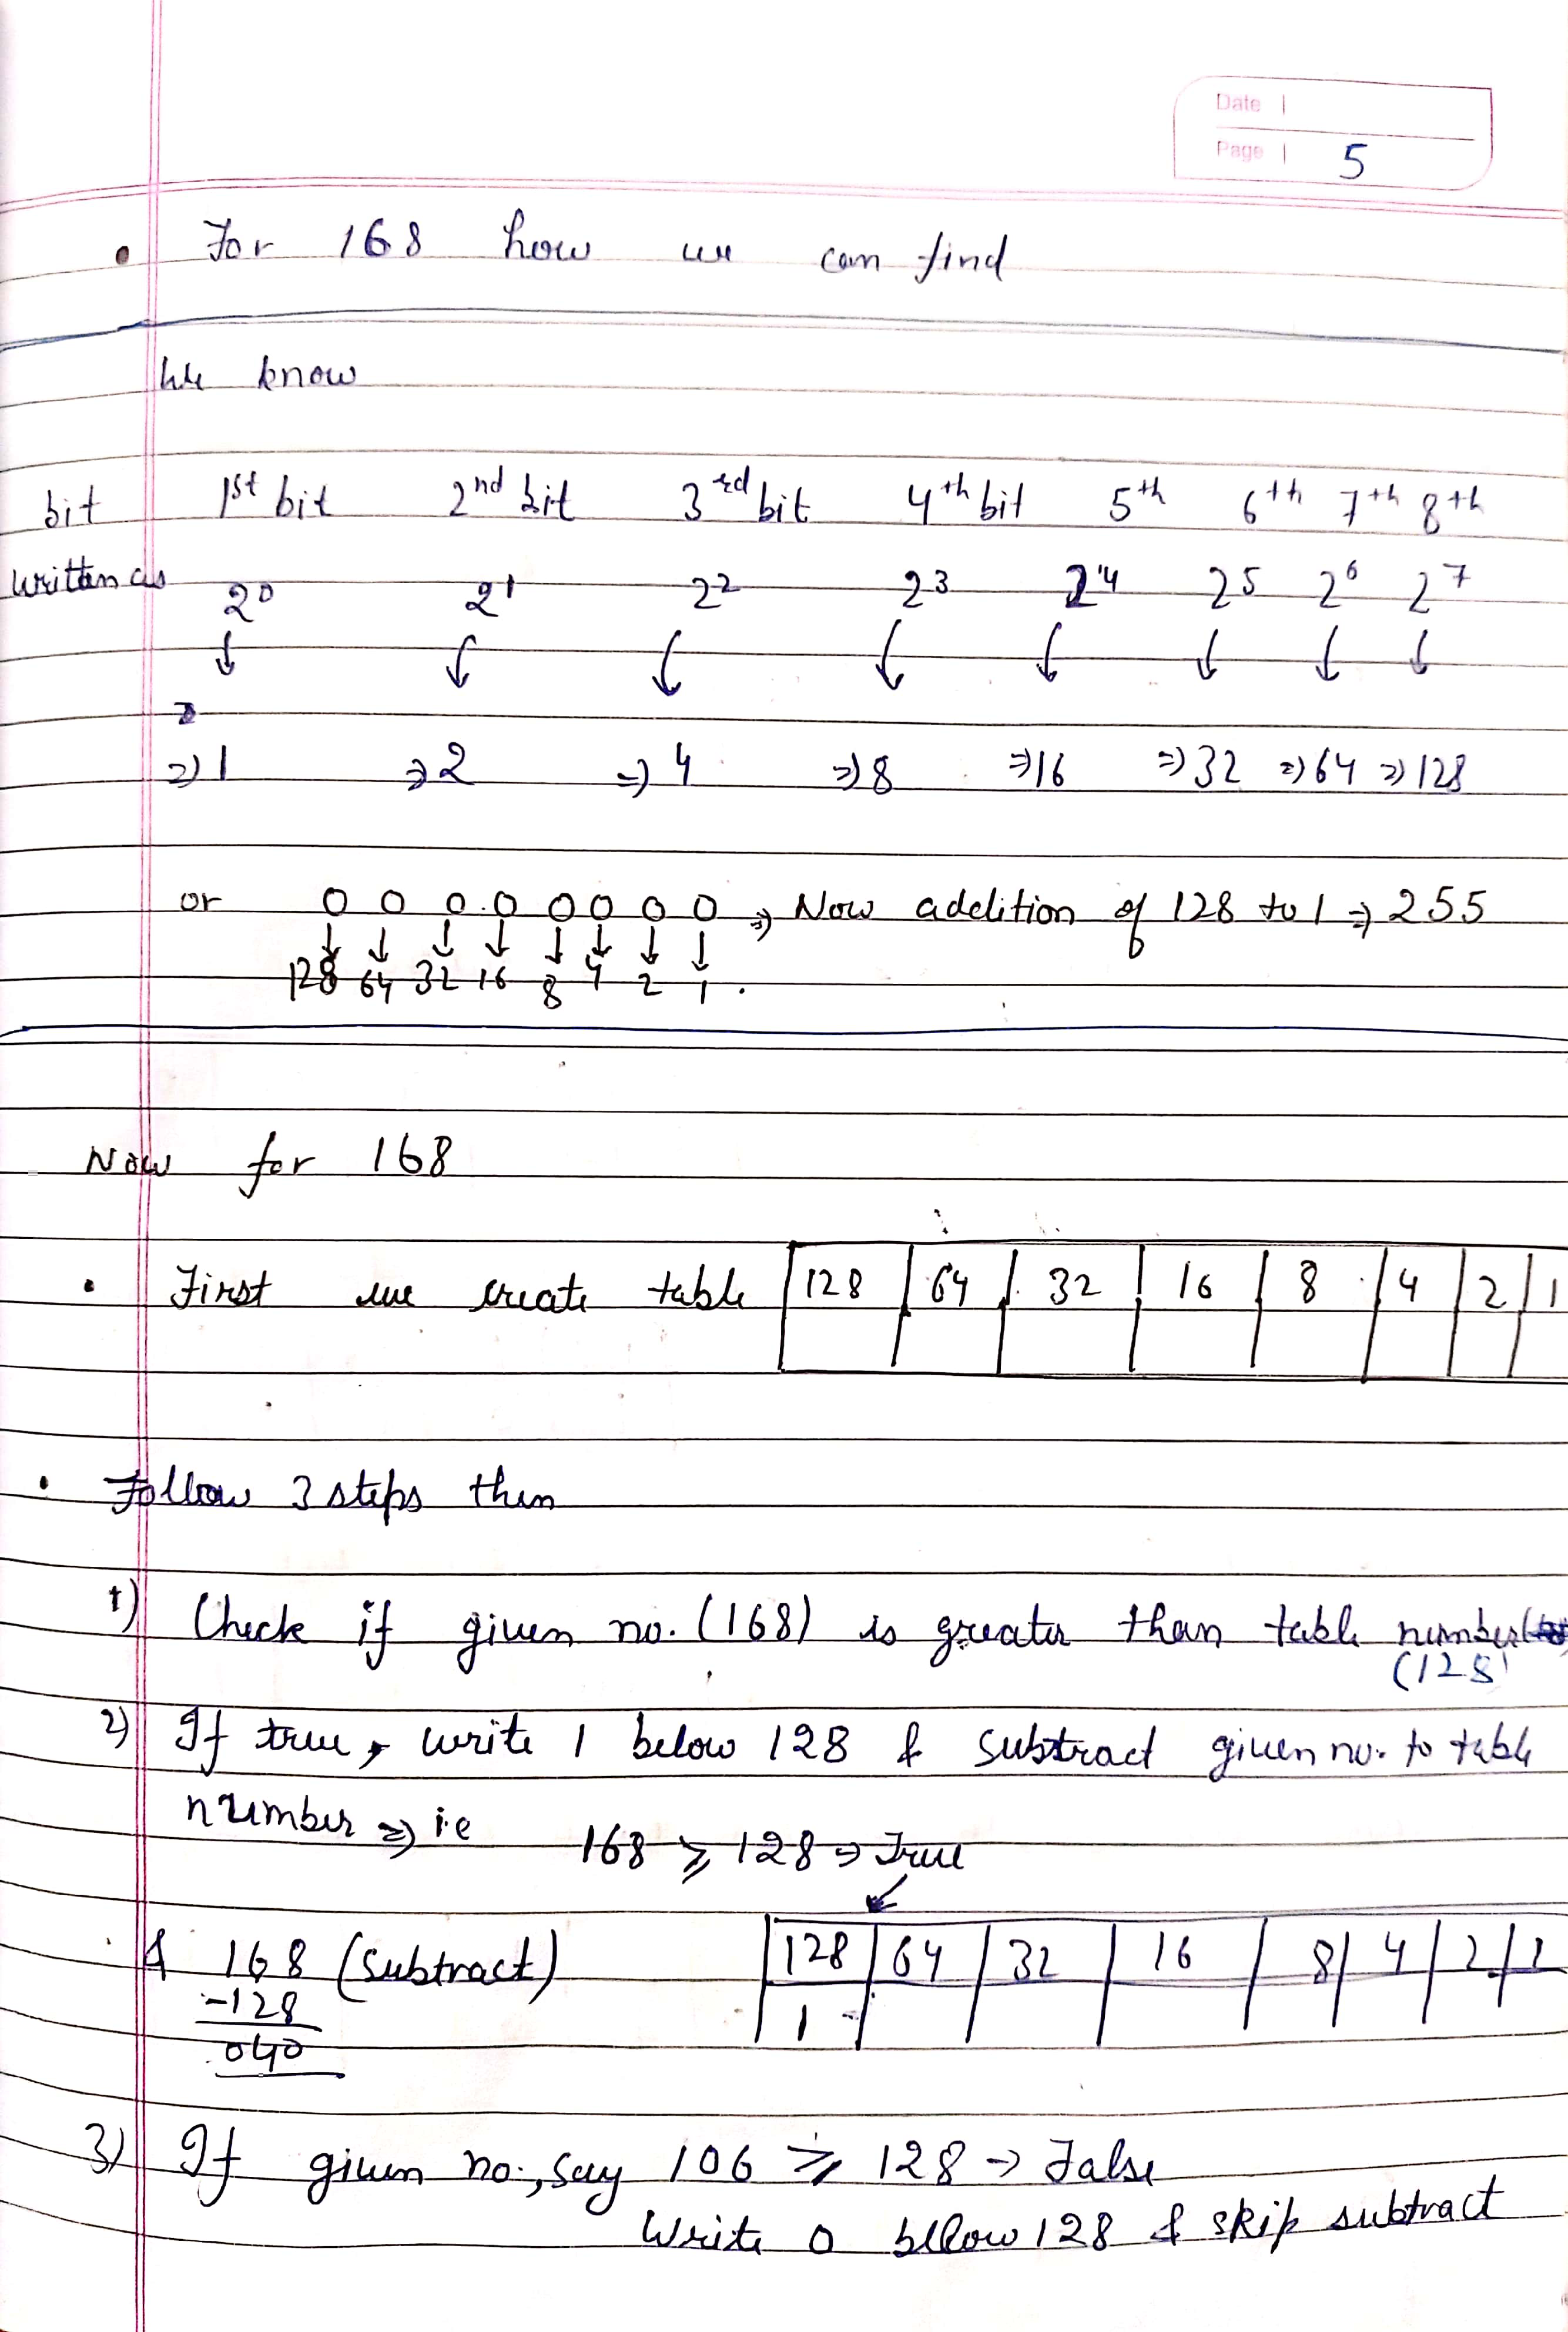 Date
Page 5
• For 168 how we can find
We know
bit 1st bit 2nd bit 3rd bit 4th bit 5th 6th 7th 8th
written as 2⁰ 2¹ 2² 2³ 2⁴ 2⁵ 2⁶ 2⁷
↓ ↓ ↓ ↓ ↓ ↓ ↓ ↓
⇒ 1 ⇒ 2 ⇒ 4 ⇒ 8 ⇒ 16 ⇒ 32 ⇒ 64 ⇒ 128
or 0 0 0 0 0 0 0 0 ⇒ Now addition of 128 to 1 ⇒ 255
↓ ↓ ↓ ↓ ↓ ↓ ↓ ↓
128 64 32 16 8 4 2 1 .
Now for 168
• First we create table 128 64 32 16 8 4 2 1
• Follow 3 steps then
1) Check if given no. (168) is greater than table number
(128)
2) If true, write 1 below 128 & subtract given no. to table
number ⇒ i.e 168 ⩾ 128 ⇒ True
& 168 (subtract) 128 64 32 16 8 4 2 1
-128 1
040
3) If given no., say 106 ⩾ 128 → False
Write 0 below 128 & skip subtract